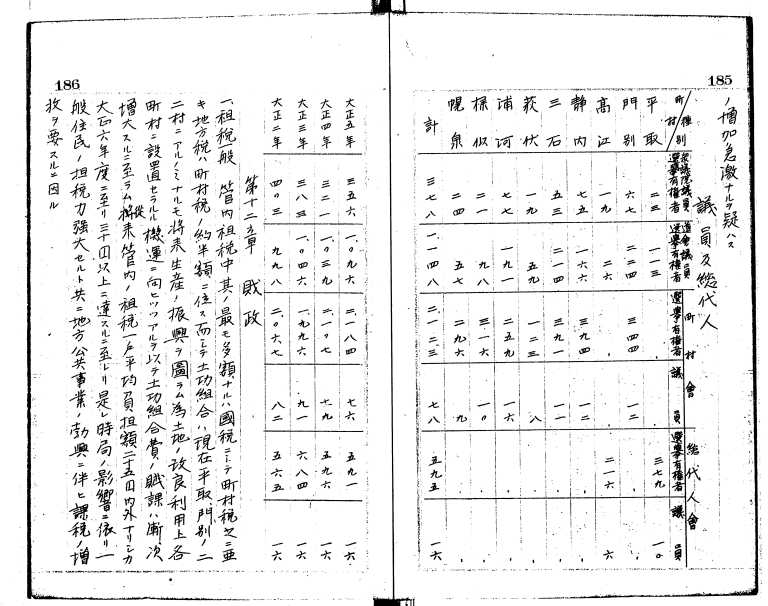 185
ノ増加急激ナルヲ疑ハス
議員及総代人
種別 町村 衆議院議員選挙有権者 道会議員選挙有権者 町村会 選挙有権者 議員 総代人会 選挙有権者 議員
平取 二三 一一三 . . 三七九 一〇
門別 六七 二二四 三四四 一二 . .
高江 一九 二六 . . 二一六 六
静内 七五 一六六 三九四 一二 . .
三石 五三 三九一 一一 . .
荻伏 一九 五九 一二三 八 . .
浦河 七七 一九一 二五九 一六 . .
様似 二一 九八 三一六 一〇 . .
幌泉 二四 五七 二九六 九 . .
計 三七八 一、一四八 二、一二三 七八 五九五 一六
186
大正五年 三五六 一、〇九六 二、一八四 七六 五九一 一六
大正四年 三二一 一、〇三九 二、一〇七 七九 五九六 一六
大正三年 三八三 一、〇四六 一、九九六 九一 六八四 一六
大正二年 四〇三 九九八 二、〇六七 八二 五六五 一六
第十二章 財政
一、租税一般 管内租税中其ノ最モ多額ナルハ国税ニシテ町村税之ニ亜
キ地方税ハ町村税ノ約半額ニ位ス而シテ土功組合ハ現在平取、門別ノ二
二村ニアルノミナルモ将来生産ノ振興ヲ圖ラム為土地ノ改良利用上各
町村ニ設置セラルヘキ機運ニ向ヒツツアルヲ以テ土功組合費ノ賦課ハ漸次
増大スルニ至ラム従将来管内ノ租税一戸平均負担額二十五円内外ナリシカ
大正六年度ニ至リ三十円以上ニ達スルニ至レリ是レ時局ノ影響ニ依リ一
般住民ノ担税力強大セルト共ニ地方公共事業ノ勃興ニ伴ヒ課税ノ増
収ヲ要スルニ因ル